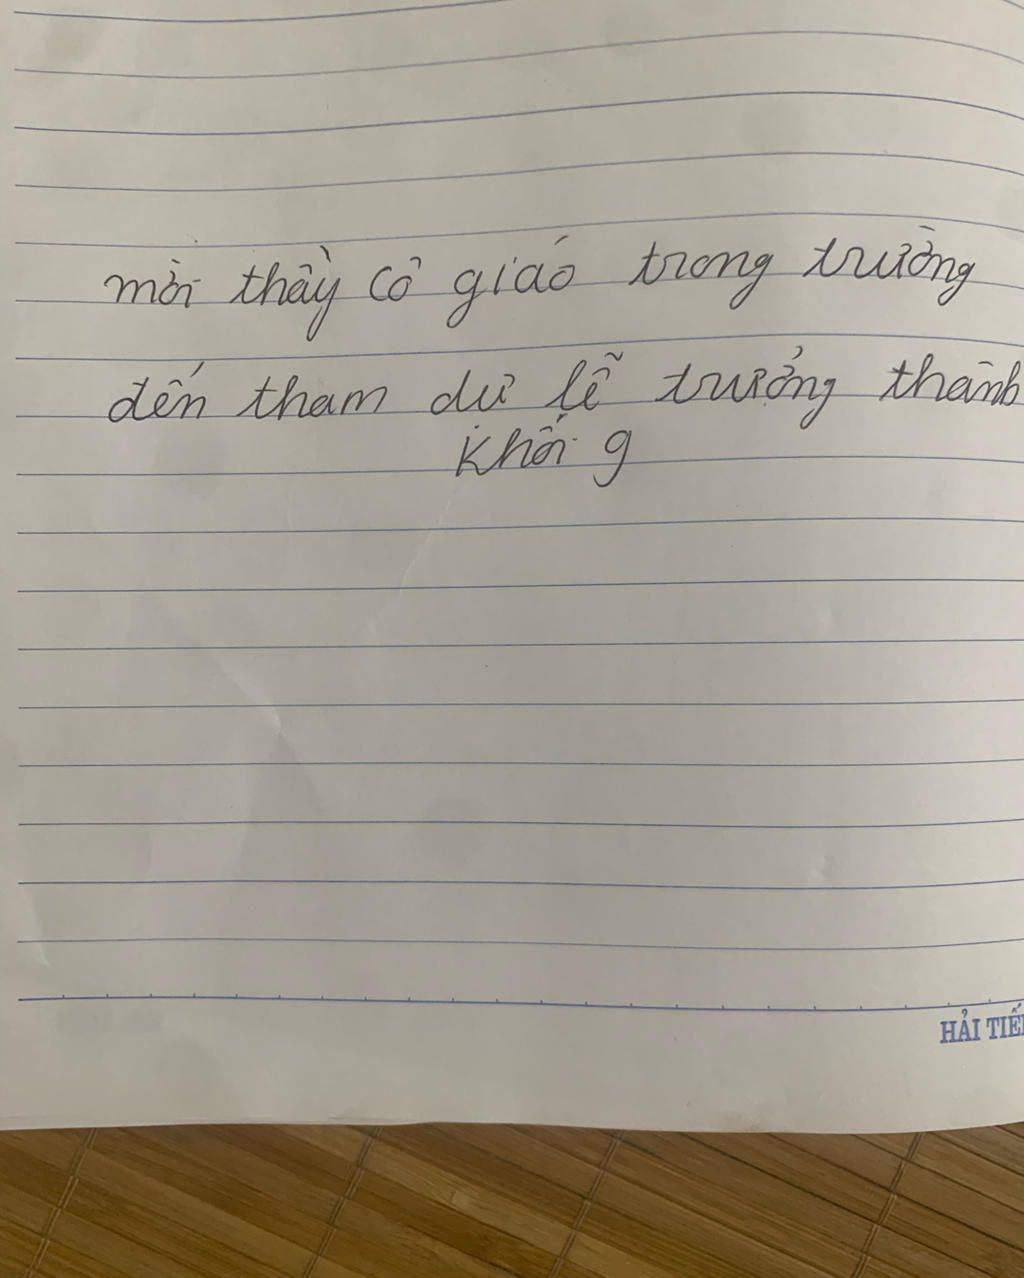 mời thầy cô giáo trong trường
đến tham dự lễ trưởng thành
khối 9
HẢI TIẾ